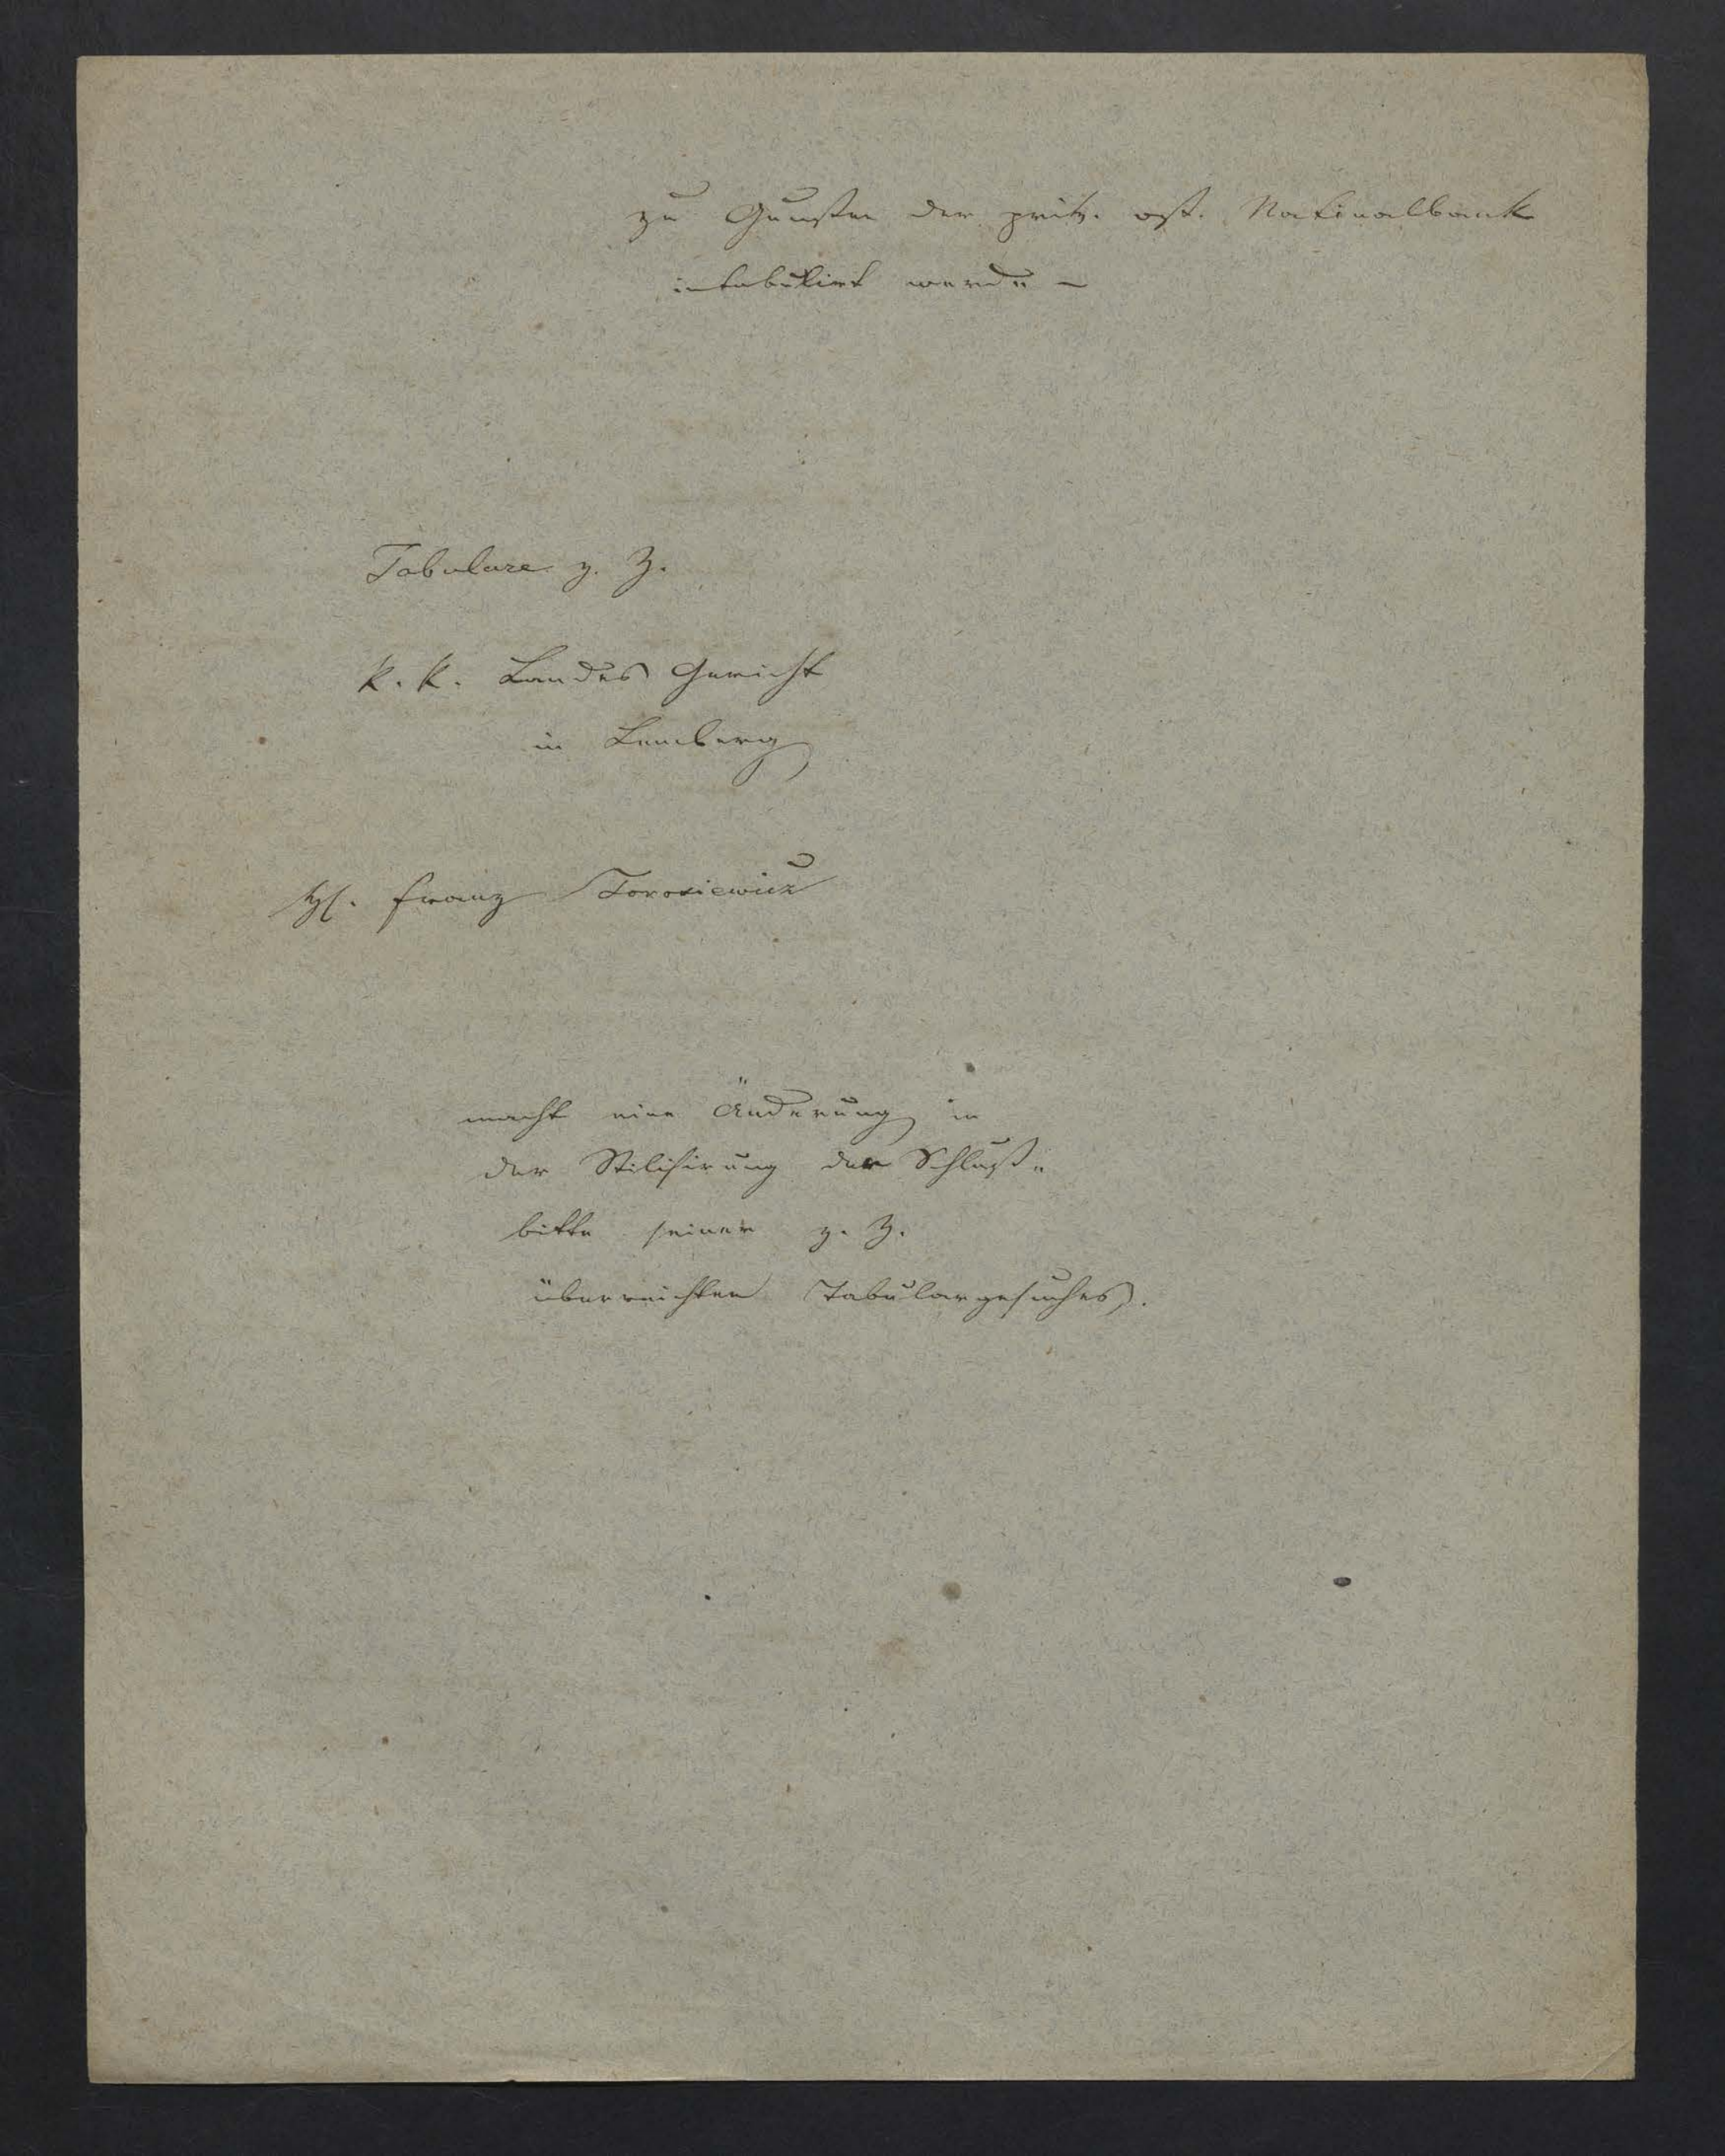 zu Gunsten der priv. öst. Nationalbank
intabulirt werde –
Tabulare z. Z.
k. k. Landes Gericht
in Lemberg
Franz Torosiewicz
macht eine Änderung in
der Stilisirung der Schluß=
bitte seiner z. Z.
überreichten Tabulargesuches.